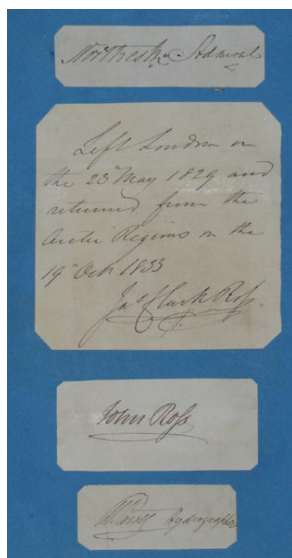 Northesk Admiral
Left London on
the 23 May 1829 and
returned from the
Arctic Regions on the
19 Oct 1833
Jas Clark Ross
John Ross
Hydrographer